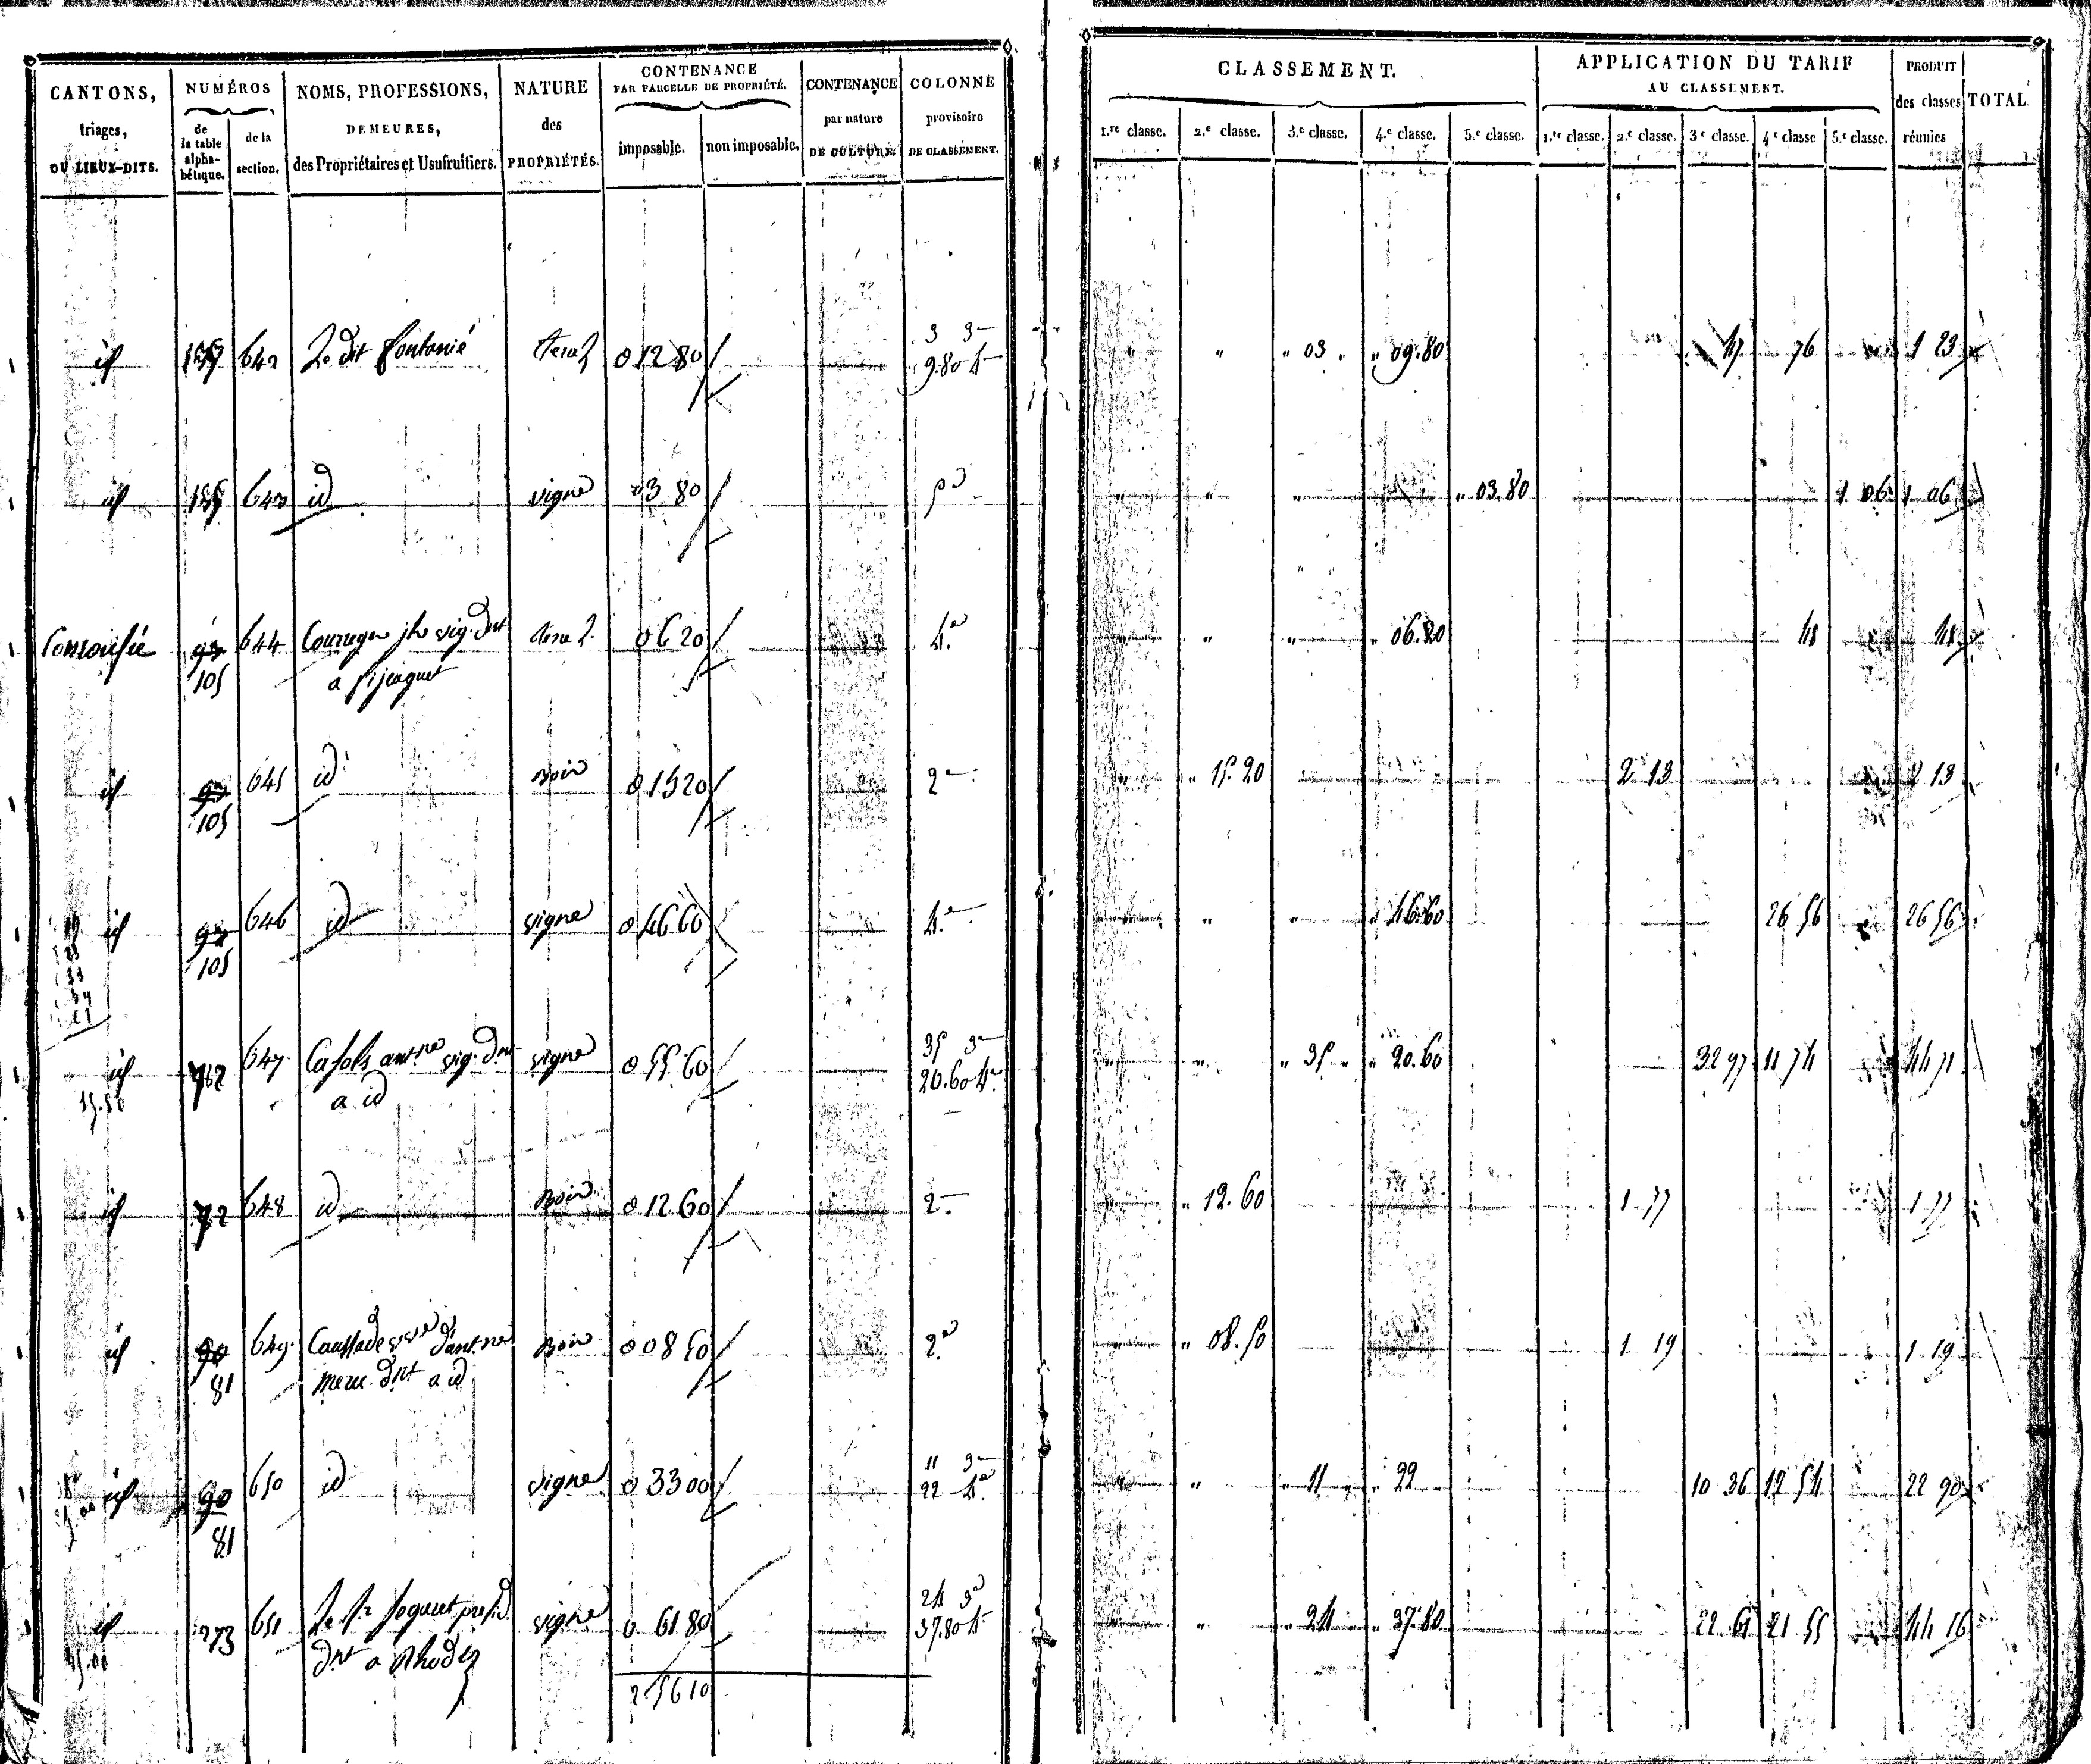 CANTONS, triages, OU LIEUX-DITS. | NUMÉROS de la table alpha-bétique. | de la section. | NOMS, PROFESSIONS, DEMEURES, des Propriétaires et Usufruitiers. | NATURE des PROPRIÉTÉS. | CONTENANCE PAR PARCELLE DE PROPRIÉTÉ. imposable. | non imposable. | CONTENANCE par nature DE CULTURE. | COLONNE provisoire DE CLASSEMENT. | CLASSEMENT. 1.re classe. | 2.e classe. | 3.e classe. | 4.e classe. | 5.e classe. | APPLICATION DU TARIF AU CLASSEMENT. 1.re classe. | 2.e classe. | 3.e classe. | 4.e classe | 5.e classe. | PRODUIT des classes réunies | TOTAL
id 642 Le dit fontanié 0 12 80 3 3e
9.80 4e " " " 03 " " 09.80 47 76 1 23
id 643 id vigne 03 80 5e " " " " 03.80 1 06 1 06
93 644 vig. dnt 06 20 4e " " " " 06.20 48 48
105 a
id 93 645 id Bois 0 15 20 2e " " 15.20 2 13 2 13
105
id 93 646 id vigne 0 46 60 4e " " " " 46.60 26 56 26 56
105
id 647 vig. dnt vigne 0 55 60 35 3e
20.60 4e " " " 35 " " 20.60 32 97 11 74 44 71
15.50 a id
id 72 648 id Bois 0 12 60 2e " " 12.60 1 77 1 77
id 90 649 Caussade Bois 0 08 50 2e " " 08.50 1 19 1 19
81 dnt a id
id 90 650 id vigne 0 33 00 11 3e
22 4e " " " 11 " " 22 10 36 12 54 22 90
81
id 273 651 vigne 0 61 80 24 3e
37.80 4e " " " 24 " 37.80 22 61 21 55 44 16
dnt a Rhodez
2 56 10